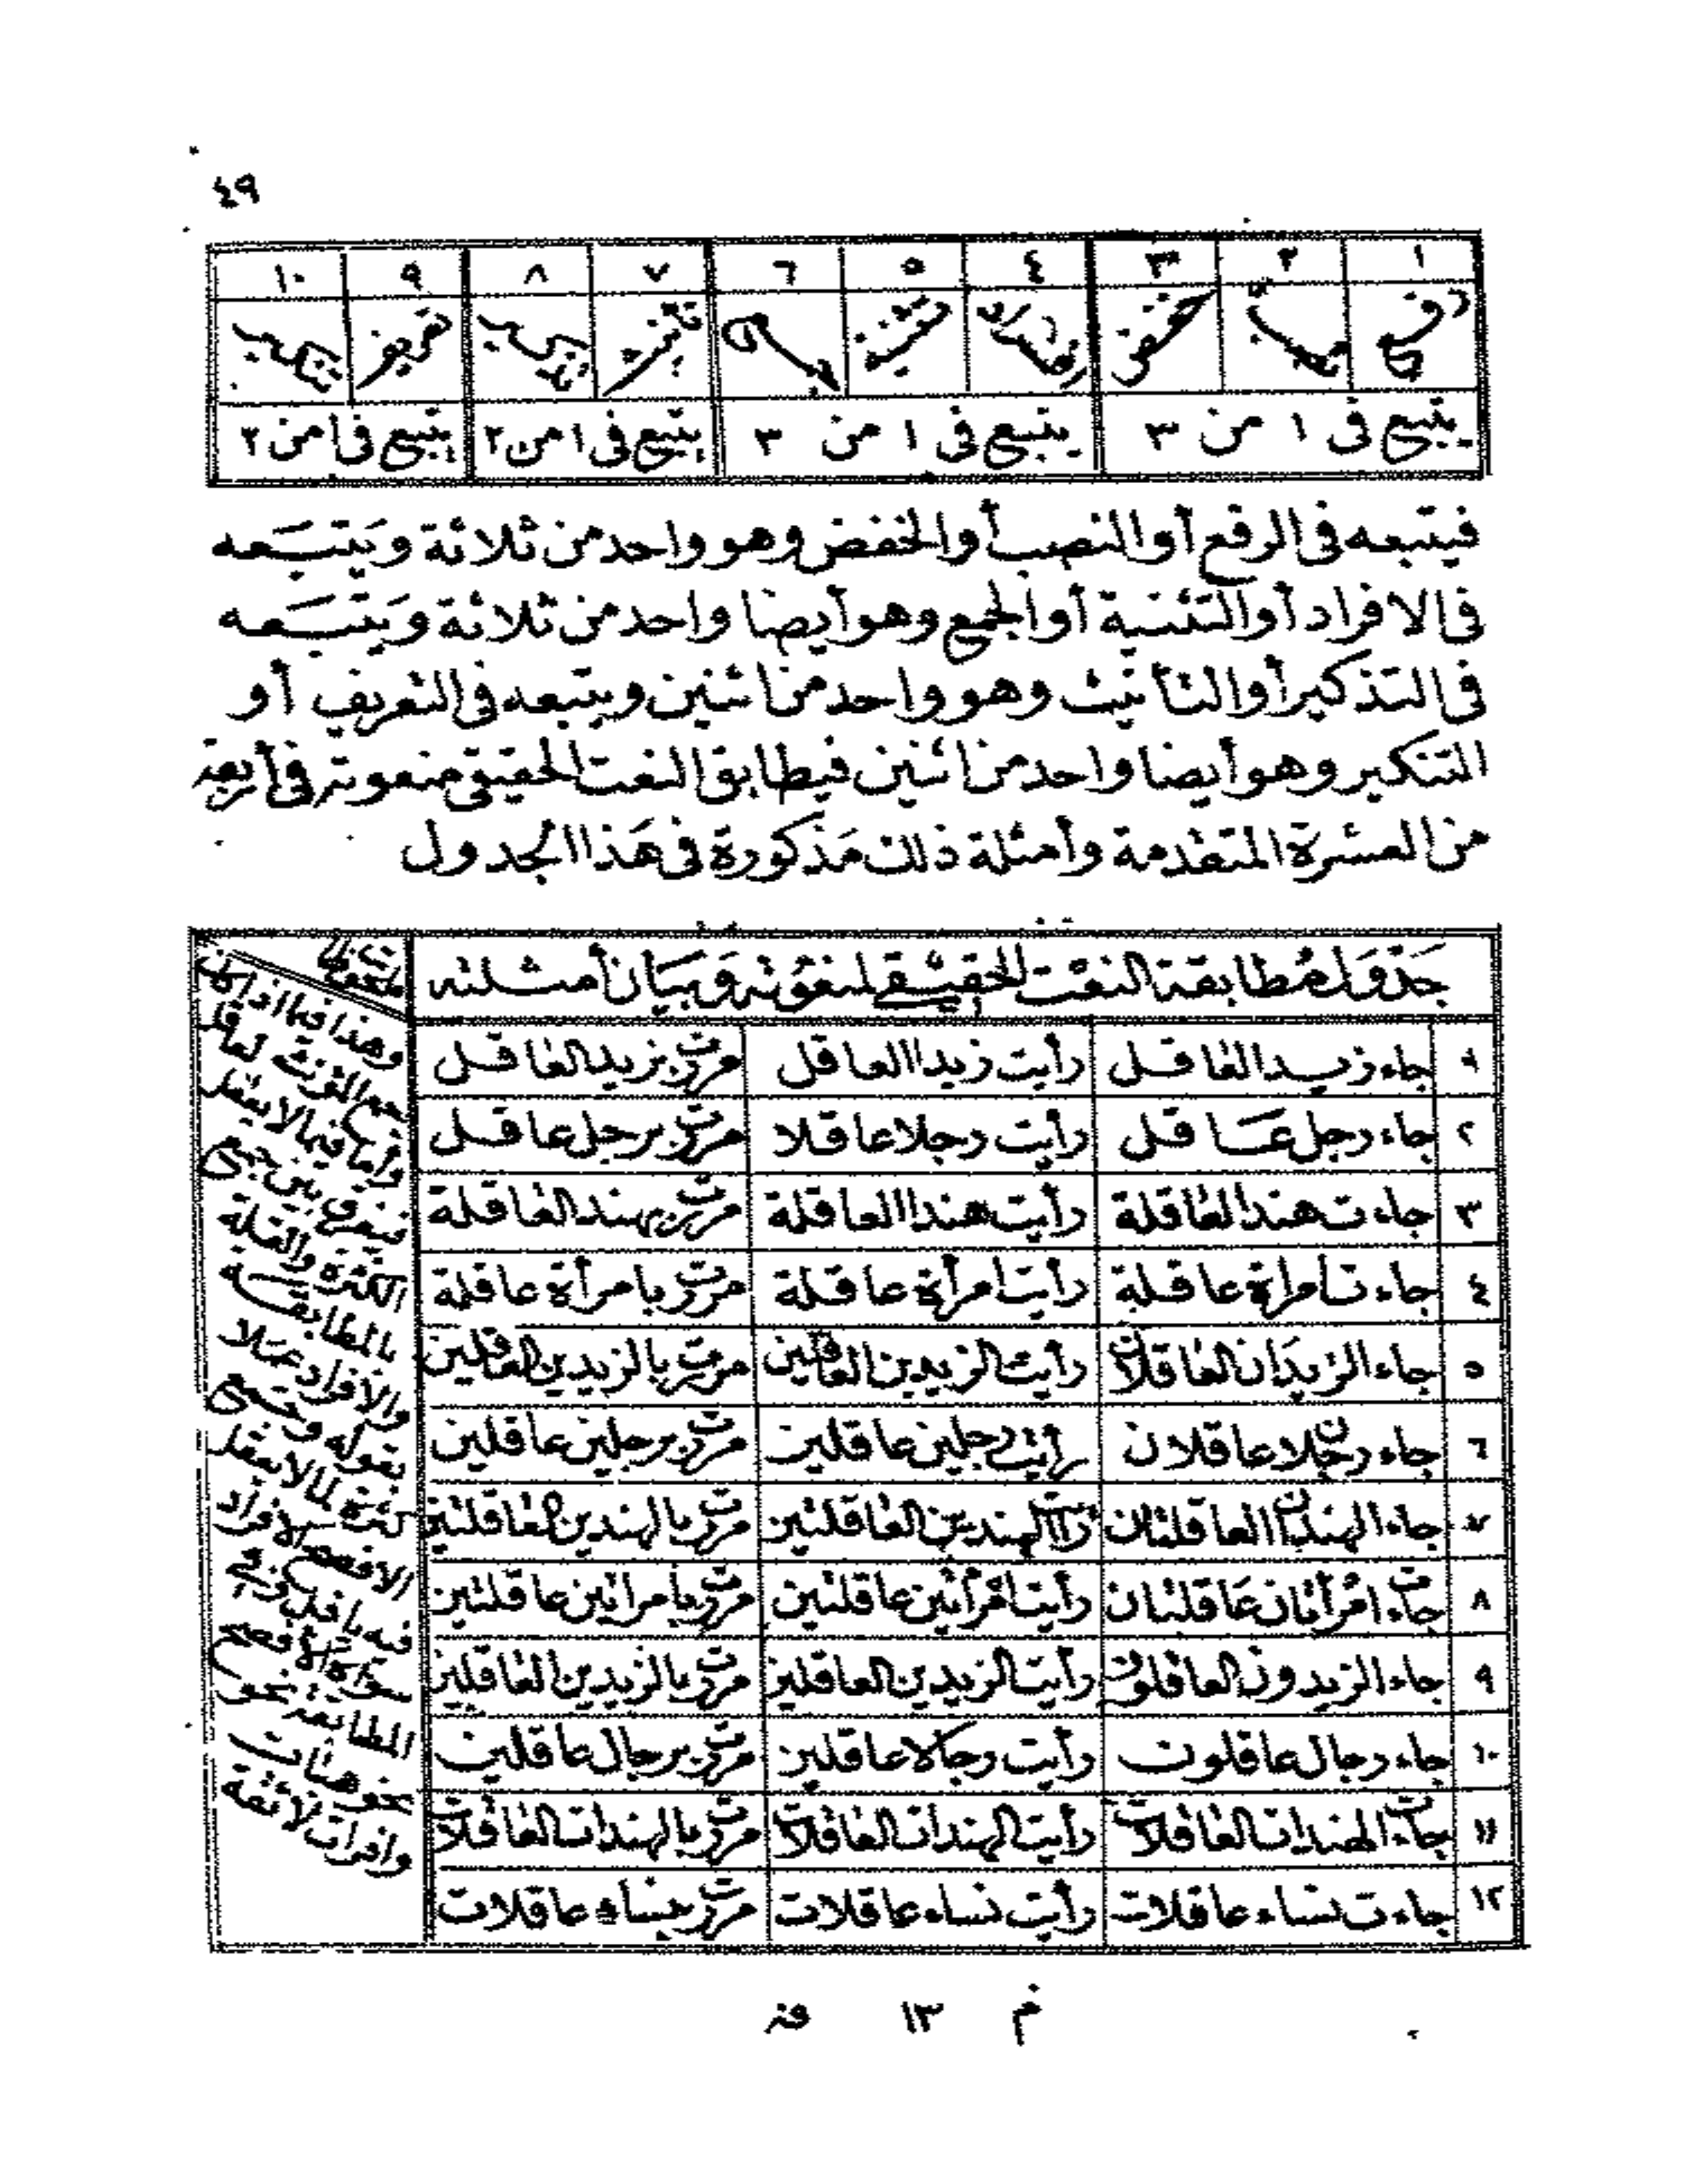 ٤٩
١ ٢ ٣ ٤ ٥ ٦ ٧ ٨ ٩ ١٠
رفع نصب خفض افراد تثنية جمع تأنيث تذكير تعريف تنكير
يتبع فى ١ من ٣ يتبع فى ١ من ٣ يتبع فى ١ من ٢ يتبع فى ١ من ٢
فيتبعه فى الرفع أو النصب أو الخفض وهو واحد من ثلاثة ويتبعه
فى الافراد أو التثنية أو الجمع وهو أيضا واحد من ثلاثة ويتبعه
فى التذكير أو التأنيث وهو واحد من اثنين ويتبعه فى التعريف أو
التنكير وهو أيضا واحد من اثنين فيطابق النعت الحقيقى منعوته فى أربعة
من العشرة المتقدمة وأمثلة ذلك مذكورة فى هذا الجدول
جدول مطابقة النعت الحقيقى لمنعوته وبيان أمثلته
١ جاء زيد العاقل رأيت زيدا العاقل مررت بزيد العاقل
٢ جاء رجل عاقل رأيت رجلا عاقلا مررت برجل عاقل
٣ جاءت هند العاقلة رأيت هندا العاقلة مررت بهند العاقلة
٤ جاءت امرأة عاقلة رأيت امرأة عاقلة مررت بامرأة عاقلة
٥ جاء الزيدان العاقلان رأيت الزيدين العاقلين مررت بالزيدين العاقلين
٦ جاء رجلان عاقلان رأيت رجلين عاقلين مررت برجلين عاقلين
٧ جاءت الهندان العاقلتان رأيت الهندين العاقلتين مررت بالهندين العاقلتين
٨ جاءت امرأتان عاقلتان رأيت امرأتين عاقلتين مررت بامرأتين عاقلتين
٩ جاء الزيدون العاقلون رأيت الزيدين العاقلين مررت بالزيدين العاقلين
١٠ جاء رجال عاقلون رأيت رجالا عاقلين مررت برجال عاقلين
١١ جاءت الهندات العاقلات رأيت الهندات العاقلات مررت بالهندات العاقلات
١٢ جاءت نساء عاقلات رأيت نساء عاقلات مررت بنساء عاقلات
ملحوظات
وهذا فيما اذا كان
جمع المؤنث لعاقل
وأما فيما لا يعقل
فيفرق بين جمع
الكثرة والقلة
بالمطابقة
والافراد عملا
بقوله وجمع
كثرة لما لا يعقل
الافصح الافراد
فيه يا فل وفى
سواه الافصح
المطابقة نحو
وافرات لائقة
م ١٣ فنـ